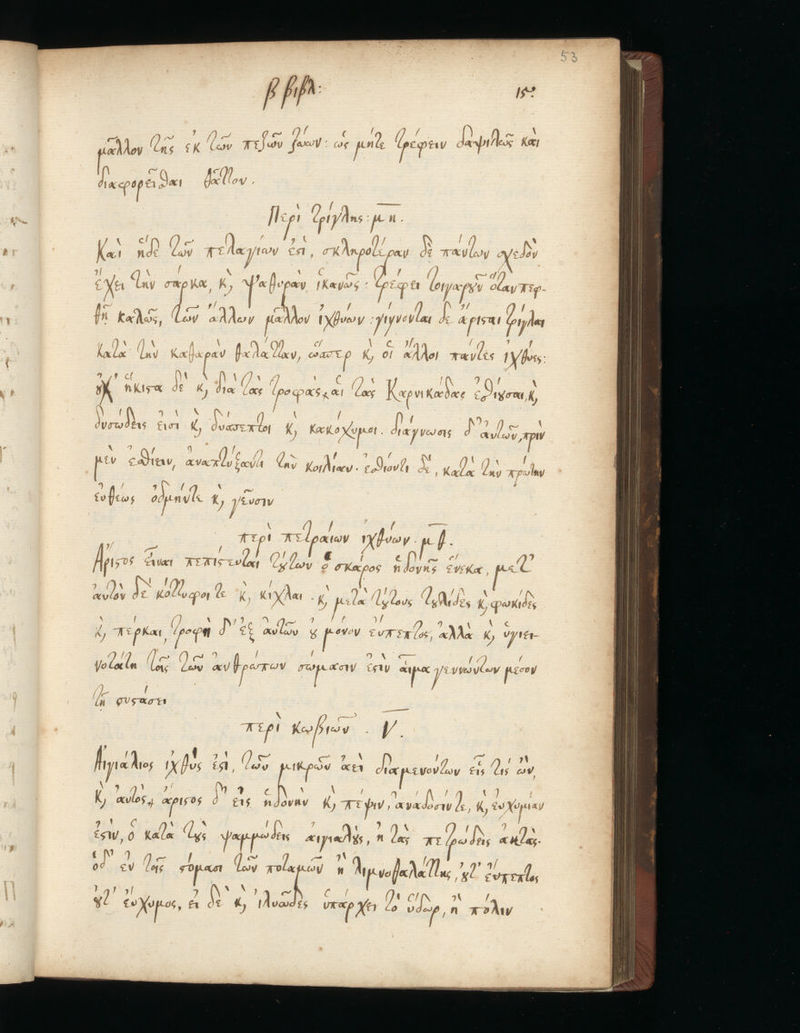 53
β βιβλ: 15:
μᾶλλον τῆς ἐκ τῶν πεζῶν ζώων: ὡς μήτε τρέφειν δαψιλῶς καὶ
διαφορεῖσθαι θᾶττον.
Περὶ τρίγλης: μη.
Καὶ ἥδε τῶν πελαγίων ἐστὶ, σκληροτέραν δὲ πάντων σχεδὸν
ἔχει τὴν σάρκα, κ ψαθυρὰν ἱκανῶς: τρέφει τοιγαροῦν ὅταν πεφ-
θῇ καλῶς, τῶν ἄλλων μᾶλλον ἰχθύων: γίγνονται δὲ ἄρισται τρίγλαι
κατὰ τὴν καθαρὰν θαλάτταν, ὥσπερ κ οἱ ἄλλοι πάντες ἰχθύες:
οὐχ' ἥκιστα δὲ κ διὰ τὰς τροφὰς, αἱ τὰς Καρνικάδας ἐσθίουσαι, κ
δυσώδεις εἰσὶ κ δύσπεπτοι κ κακόχυμοι. διάγνωσις δ' ἀυτῶν, πρὶν
μὲν ἐσθίειν, ἀναπτύξαντι τὴν κοιλίαν. ἐσθίοντι δὲ, κατὰ τὴν πρώτην
ἐυθέως ὀδμήν τε κ γεῦσιν
περὶ πετραίων ἰχθύων. μθ.
Ἄριστος εἶναι πεπίστευται τούτων ὁ σκάρος ἡδονῆς ἕνεκα, μετ'
ἀυτὸν δὲ κόττυφοί τε κ κίχλαι. κ μετὰ τούτους ἰουλίδες κ φωκίδες
κ πέρκαι, τροφὴ δ' ἐξ ἀυτῶν οὐ μόνον ἔυπεπτος, ἀλλὰ κ ὑγιει-
νοτάτη τοῖς τῶν ἀνθρώπων σώμασιν ἐστὶν αἷμα γεννώντων μέσον
τῇ συστάσει
περὶ κωβιῶν. ν.
Ἀιγιάλιος ἰχθύς ἐστὶ, τῶν μικρῶν ἀεὶ διαμενόντων εἷς τίς ὢν,
κ ἀυτὸς, ἄριστος δ' εἰς ἡδονὴν κ πέψιν, ἀνάδοσίν τε, κ ἐυχυμίαν
ἐστὶν, ὁ κατὰ τοὺς ψαμμώδεις αἰγιαλοὺς, ἢ τὰς πετρώδεις ἀκτὰς.
ὁδ' ἐν τοῖς στόμασι τῶν ποταμῶν ἢ λιμνοθαλάττης, οὔτ' ἔυπεπτος
οὔτ' ἔυχυμος, εἰ δὲ κ ἰλυῶδες ὑπάρχει τὸ ὕδωρ, ἢ πόλιν